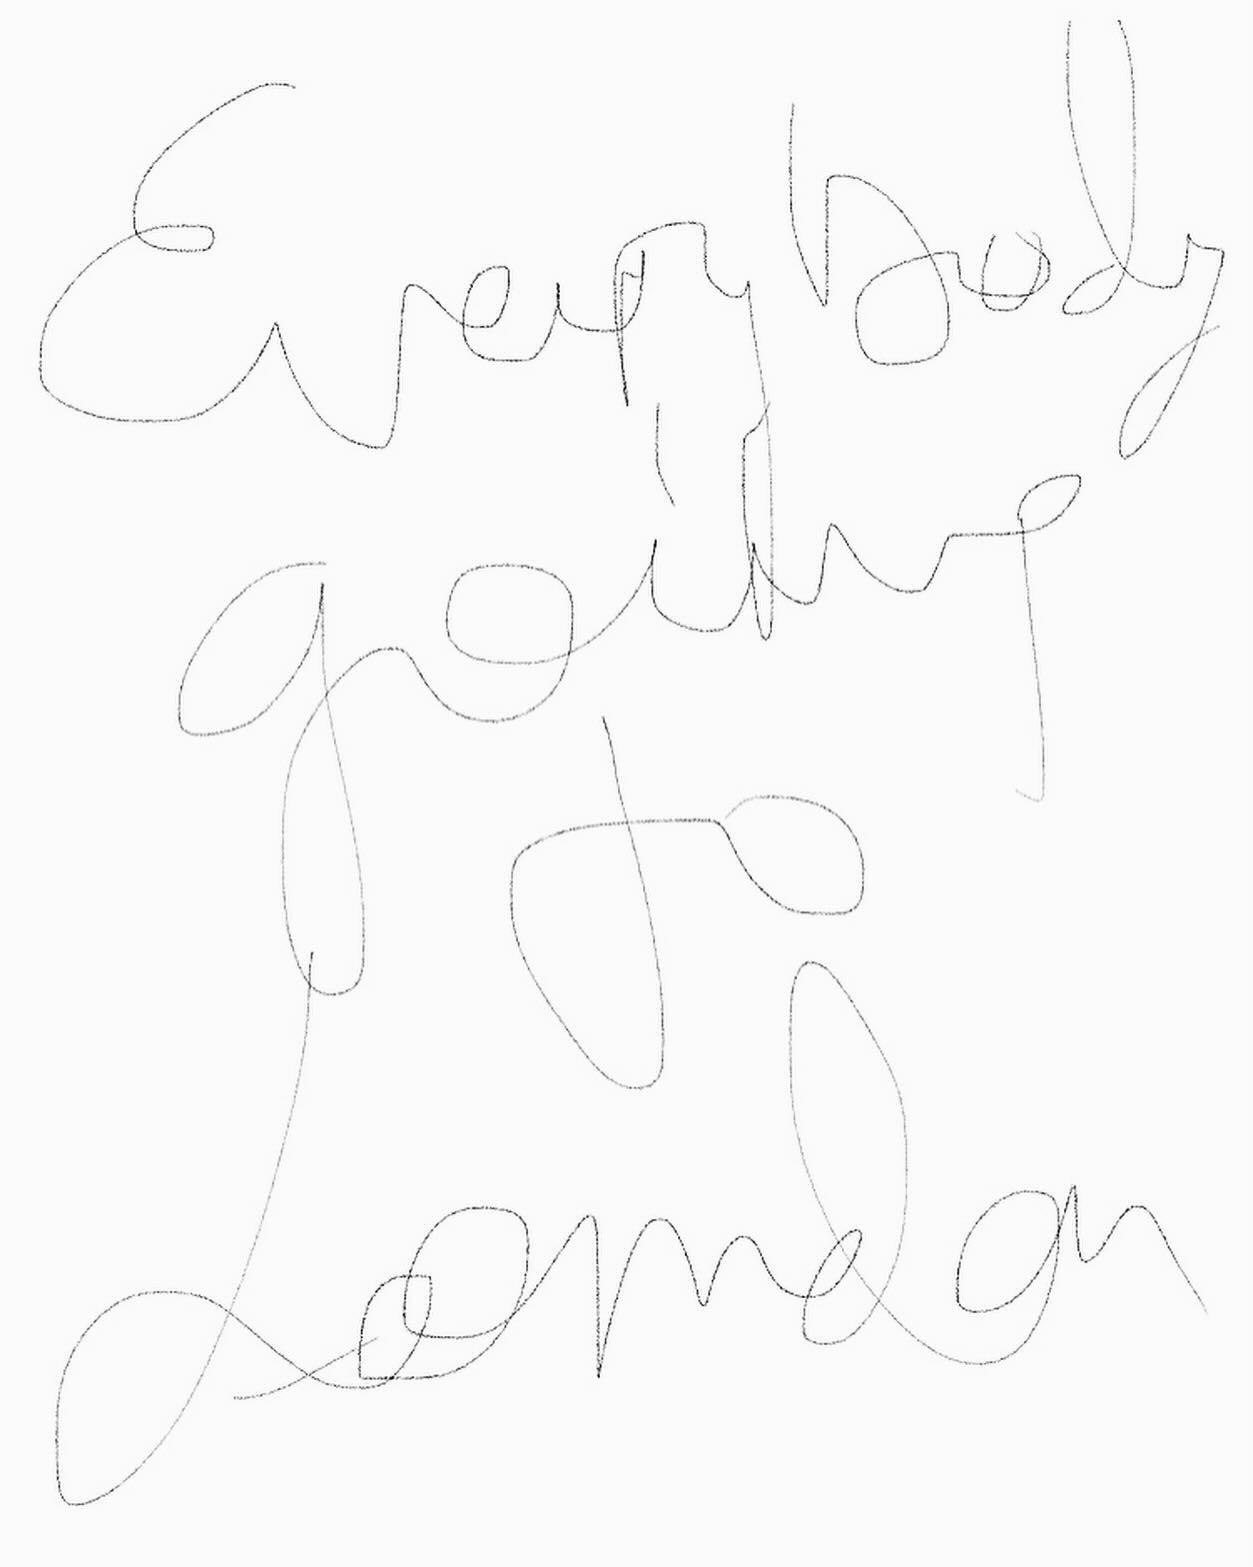 Everybody
going
to
London